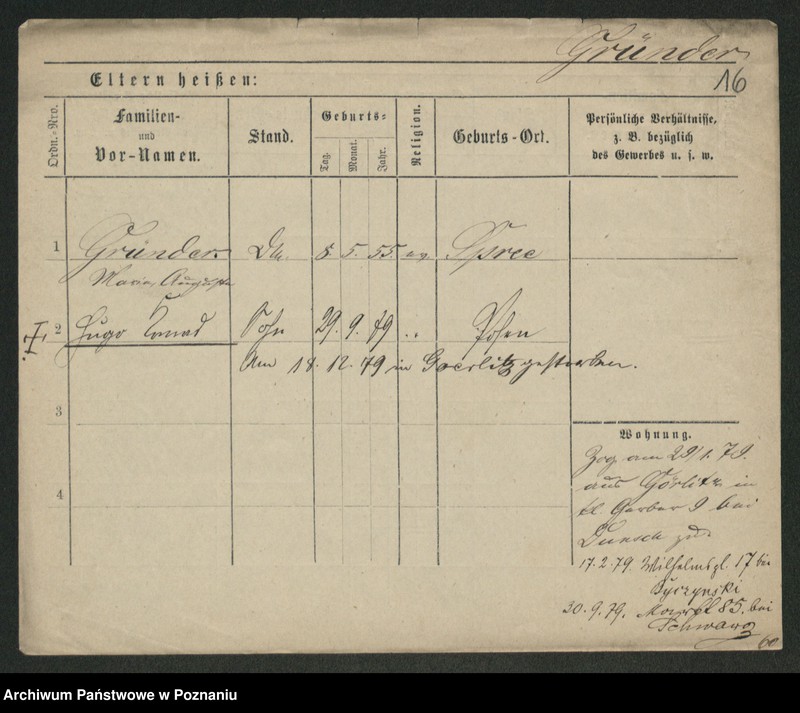 Gründer
16
Eltern heißen:
Ordn.-Nro.
Familien-
und
Vor-Namen.
Stand.
Geburts-
Tag.
Monat.
Jahr.
Religion.
Geburts-Ort.
Persönliche Verhältnisse,
z. B. bezüglich
des Gewerbes u. s. w.
1 Gründer Maria Auguste 8. 5. 55. ev. Spree
2 Hugo Konrad Sohn 29. 9. 79 " Posen
Am 18. 12. 79 in Goerlitz gestorben.
3
4
Wohnung.
Zog am 29/1. 79.
aus Görlitz in
kl. Gerber 9 bei
Dunsch zu.
17. 2. 79. Wilhelmspl. 17 bei
Byczynski
30. 9. 79. 85. bei
Schwarz
60
Archiwum Państwowe w Poznaniu